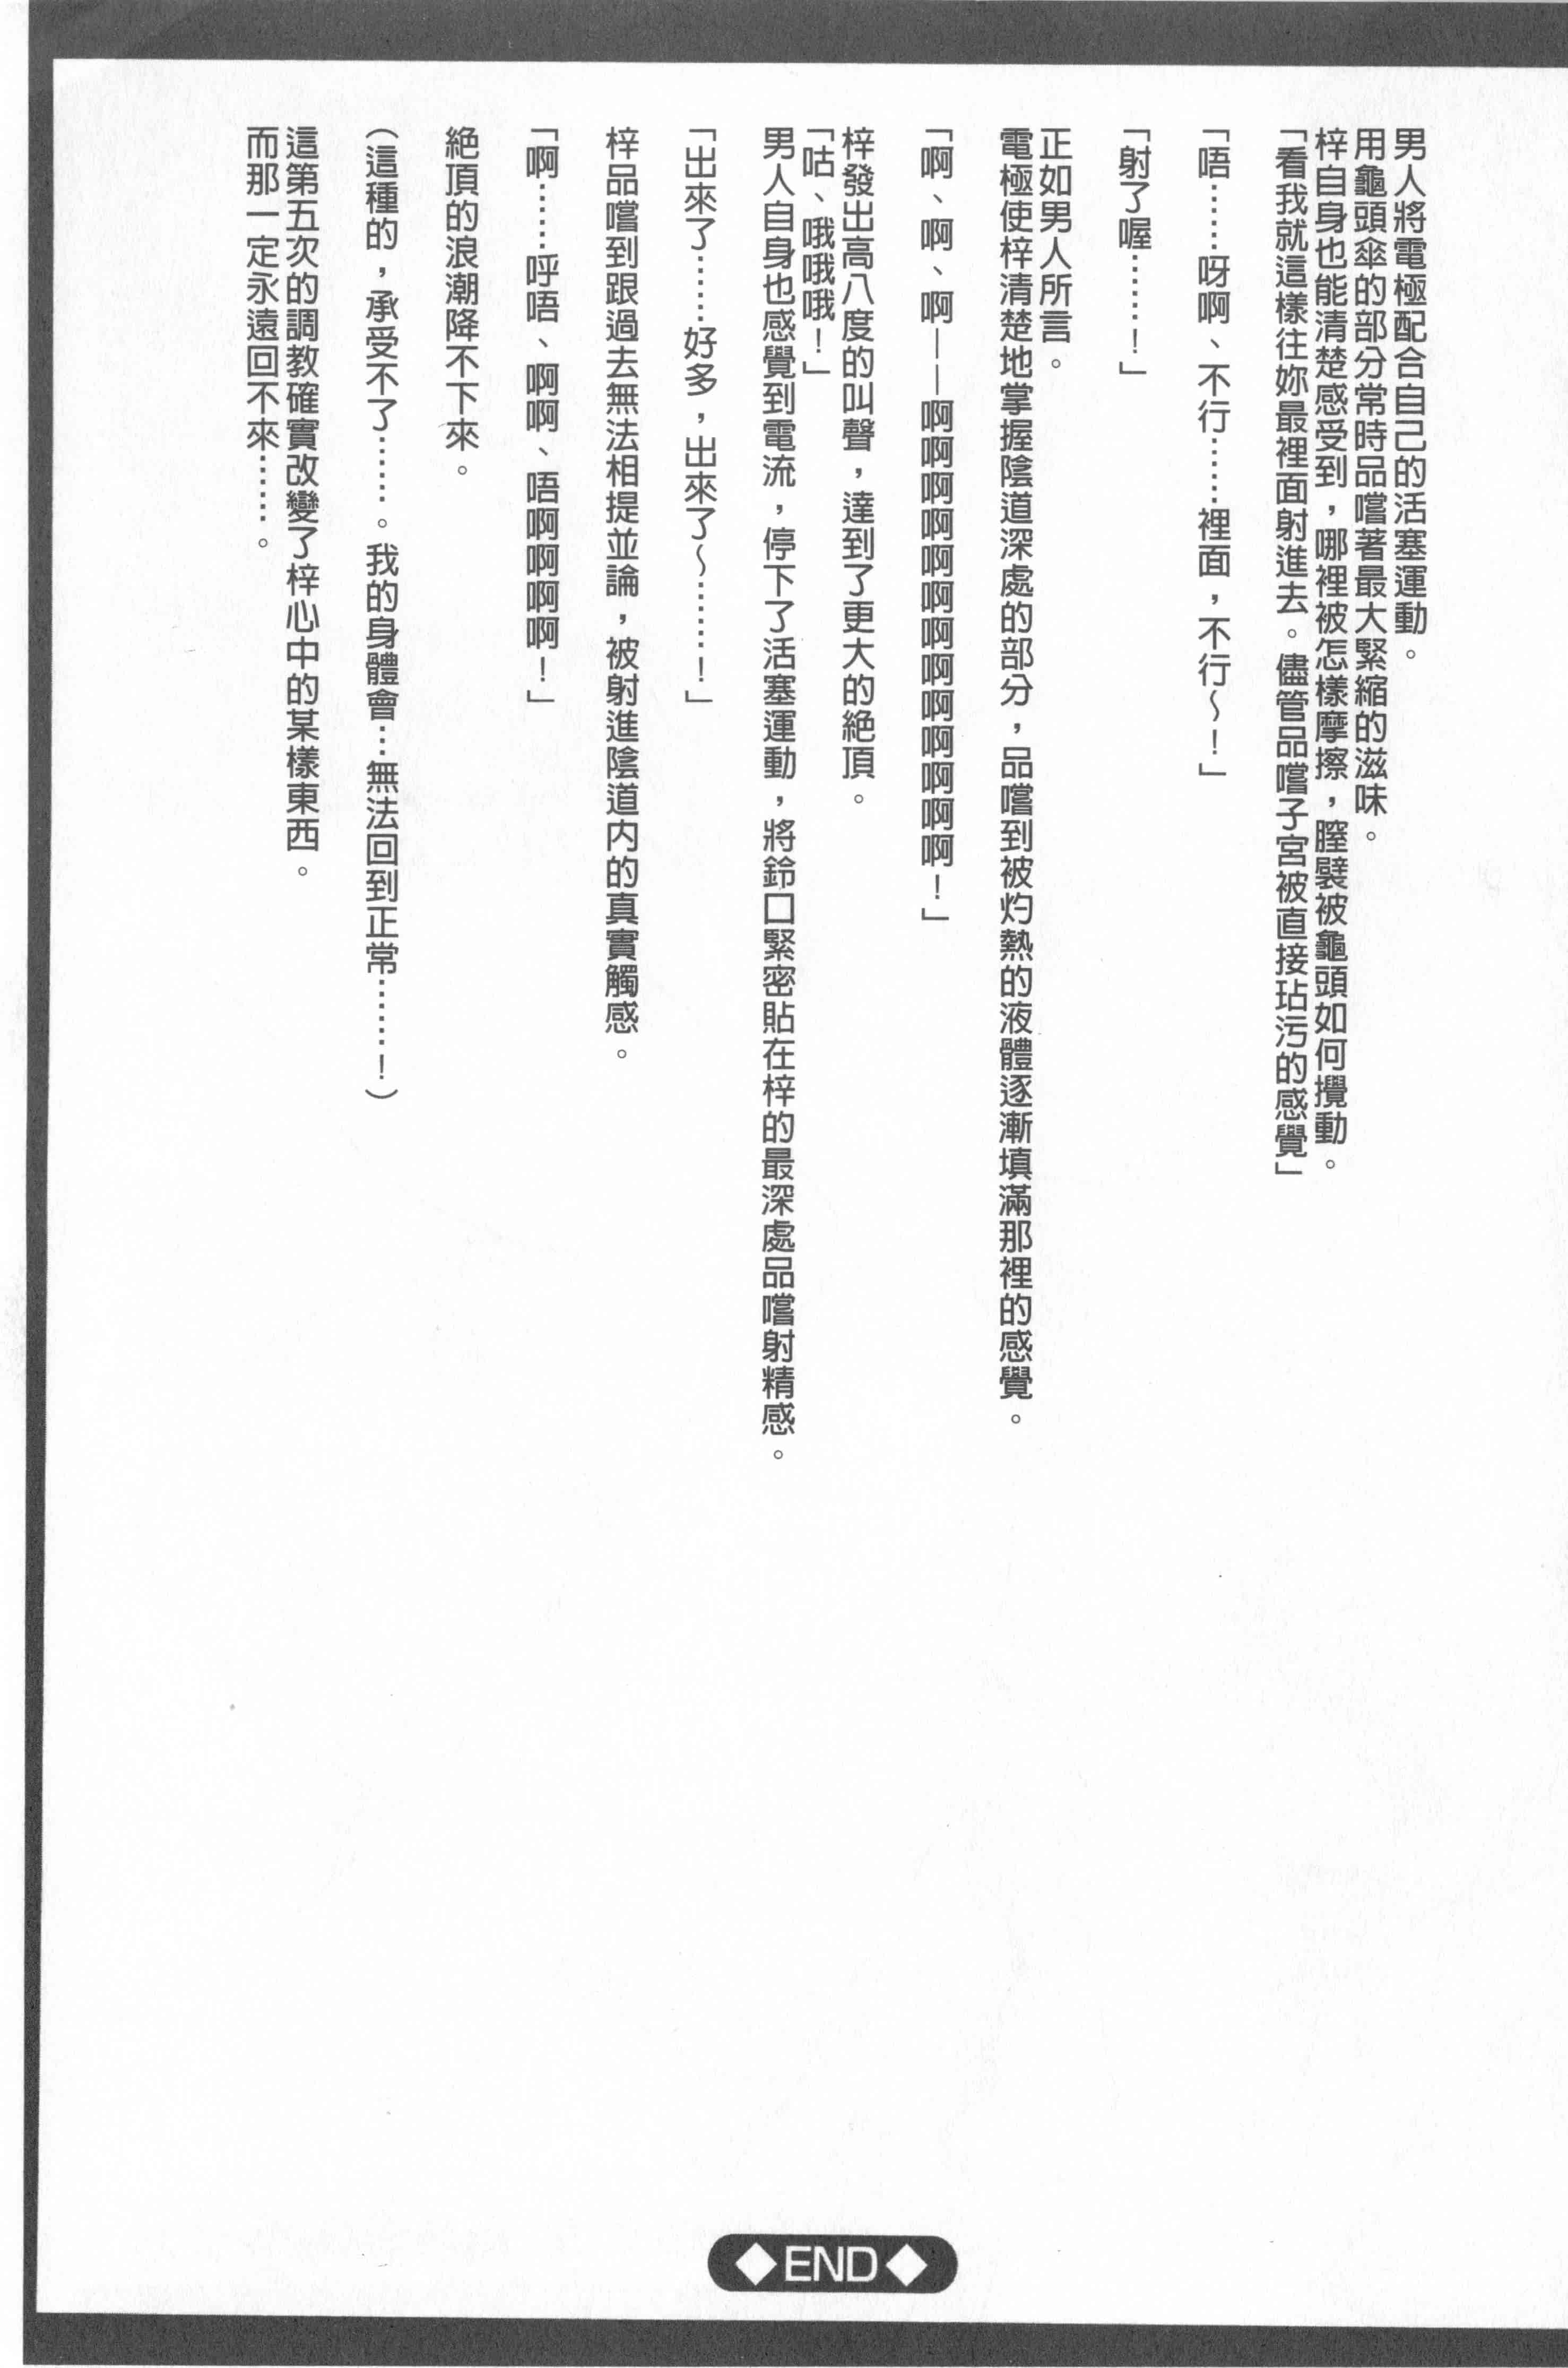 男人將電極配合自己的活塞運動。
用龜頭傘的部分常時品嚐著最大緊縮的滋味。
梓自身也能清楚感受到，哪裡被怎樣摩擦，膣襞被龜頭如何攪動。
「看我就這樣往妳最裡面射進去。儘管品嚐子宮被直接玷污的感覺」
「唔……呀啊、不行……裡面，不行～！」
「射了喔……！」
正如男人所言。
電極使梓清楚地掌握陰道深處的部分，品嚐到被灼熱的液體逐漸填滿那裡的感覺。
「啊、啊、啊——啊啊啊啊啊啊啊啊啊啊啊啊啊！」
梓發出高八度的叫聲，達到了更大的絶頂。
「咕、哦哦哦！」
男人自身也感覺到電流，停下了活塞運動，將鈴口緊密貼在梓的最深處品嚐射精感。
「出來了……好多，出來了～……！」
梓品嚐到跟過去無法相提並論，被射進陰道内的真實觸感。
「啊……呼唔、啊啊、唔啊啊啊啊！」
絶頂的浪潮降不下來。
（這種的，承受不了……。我的身體會…無法回到正常……！）
這第五次的調教確實改變了梓心中的某樣東西。
而那一定永遠回不來……。
◆END◆